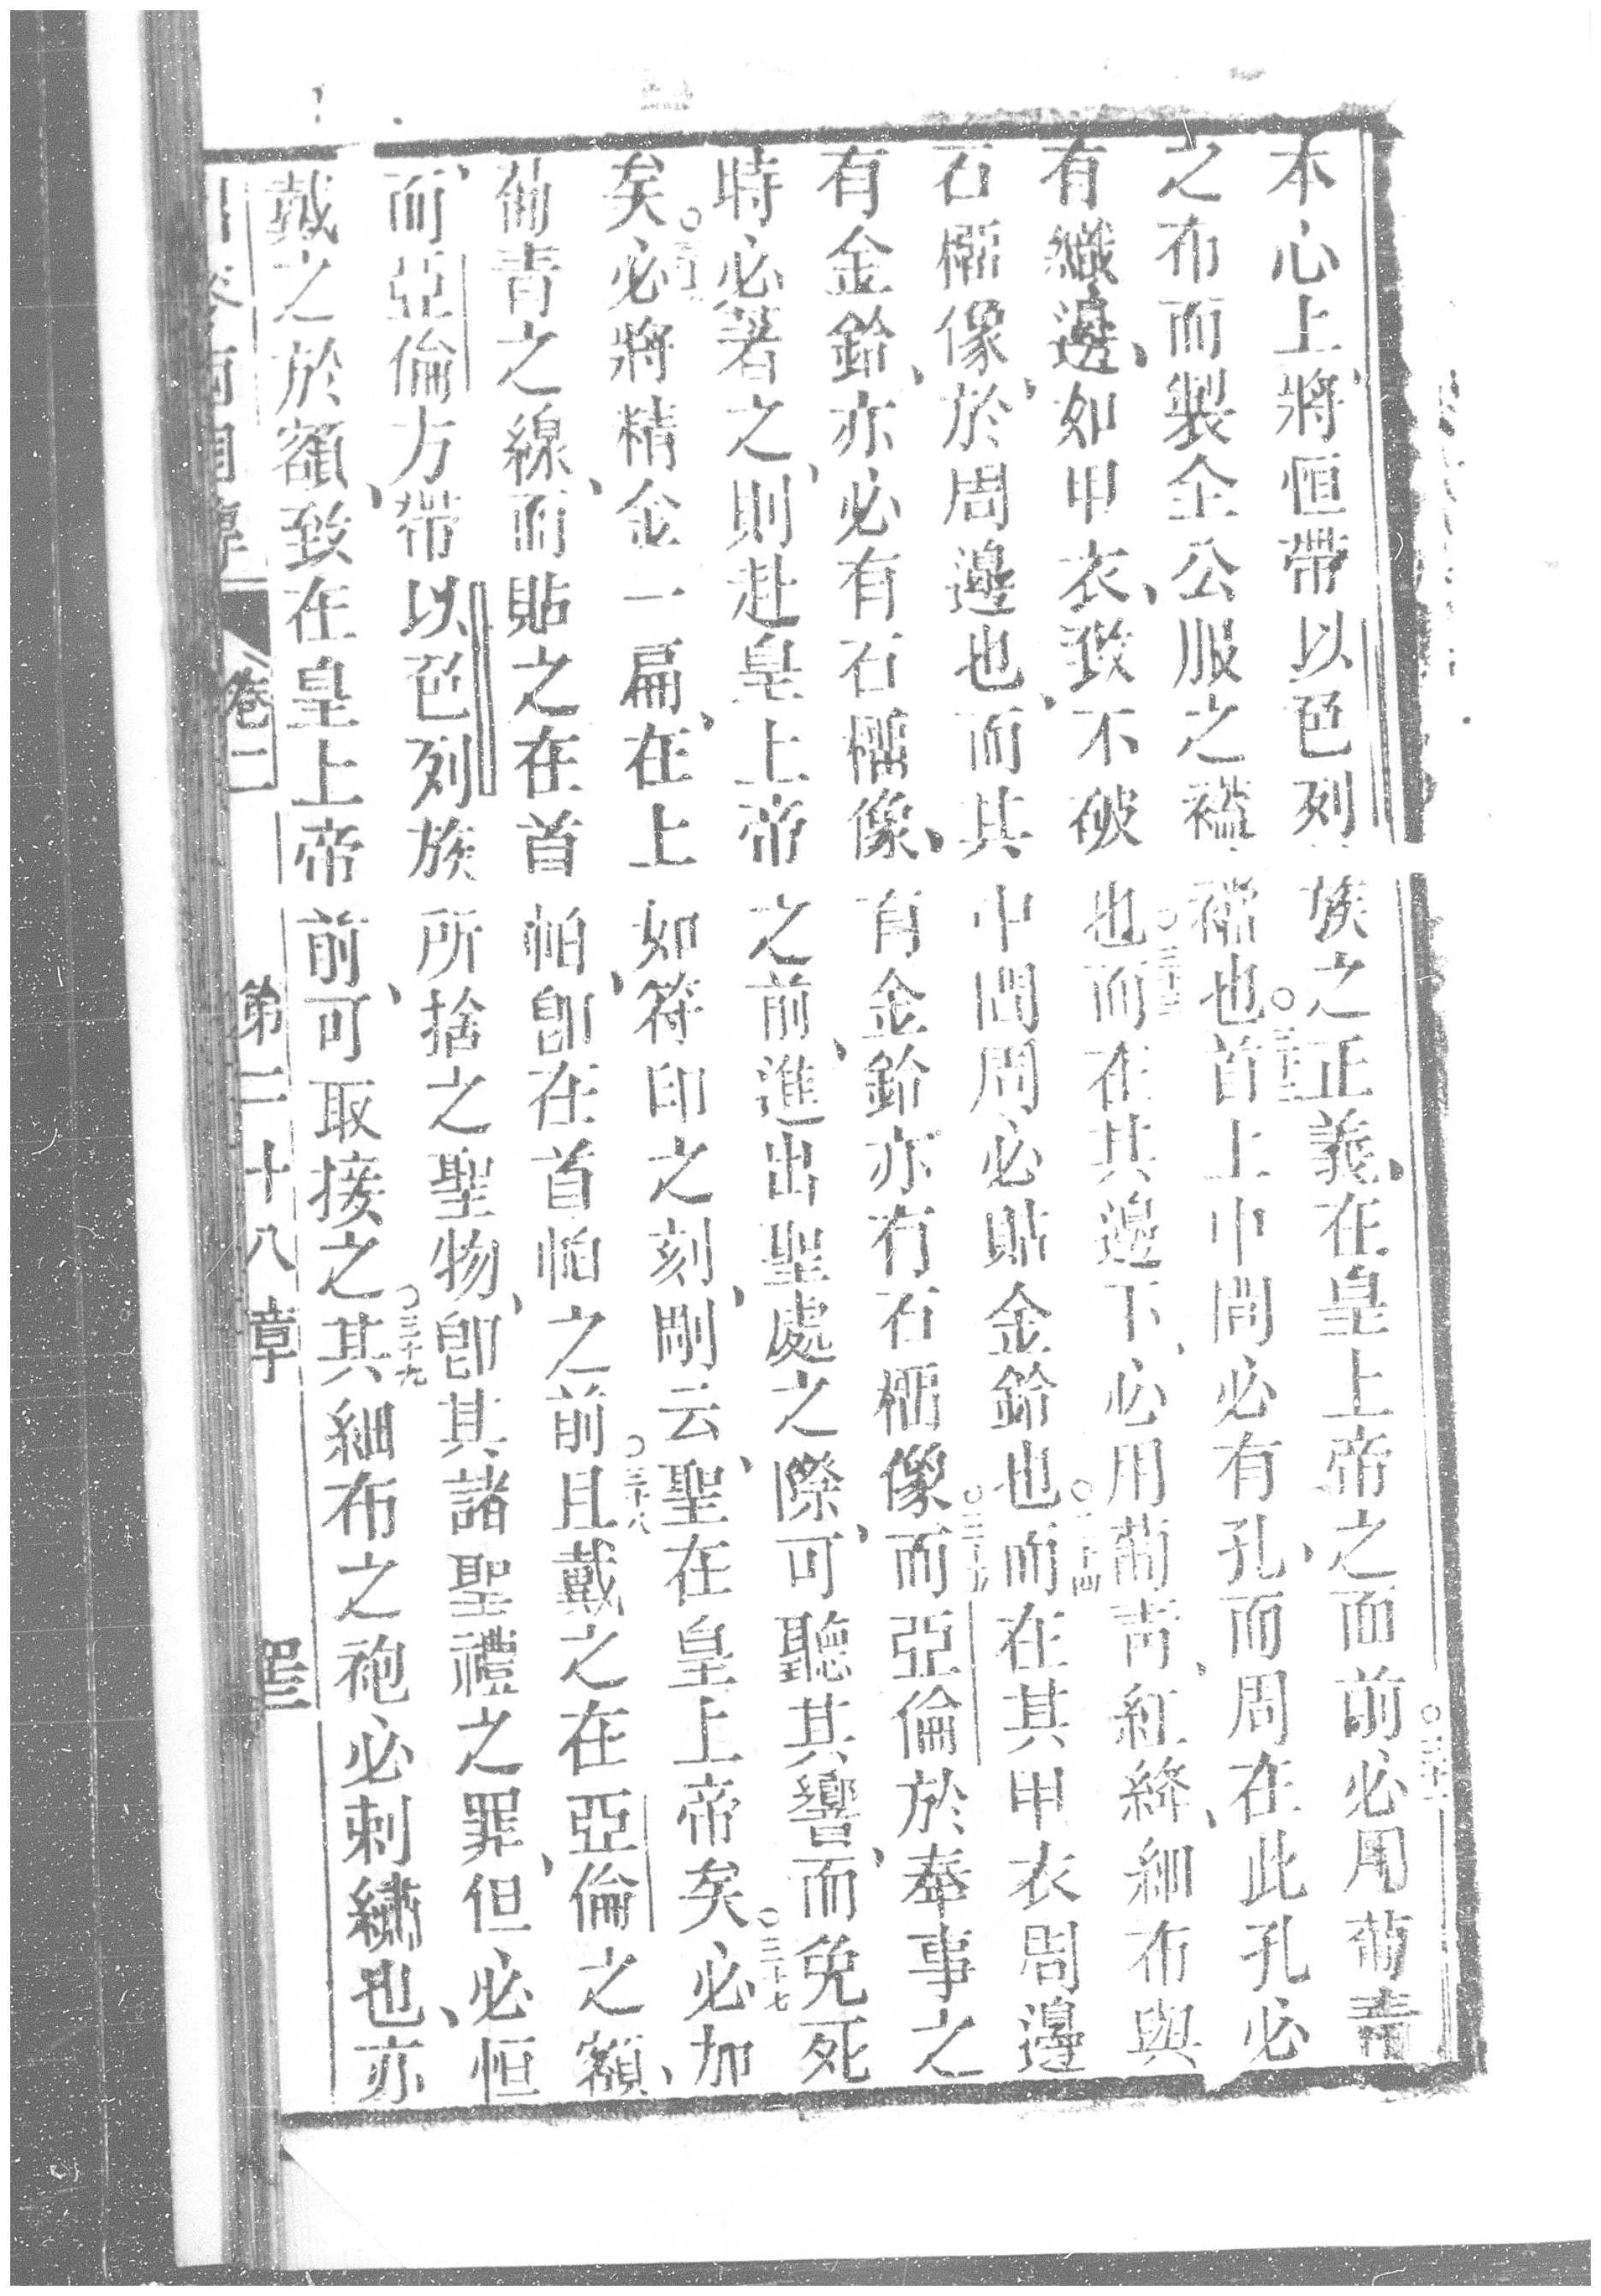 本心上將恒帶以色列族之正義在皇上帝之面前○三十一必用葡青
之布而製全公服之襤襦也○三十二首上中間必有孔而周在此孔必
有織邊如甲衣致不破也○三十三而在其邊下必用葡青紅絳細布與
石榴像於周邊也而其中間周必貼金鈴也○三十四而在其甲衣周邊
有金鈴亦必有石榴像有金鈴亦有石榴像○三十五而亞倫於奉事之
時必著之則赴皇上帝之前進出聖處之際可聽其響而免死
矣○三十六必將精金一扁在上如符印之刻剛云聖在皇上帝矣○三十七必加
葡青之線而貼之在首帕卽在首帕之前○三十八且戴之在亞倫之額
而亞倫方帶以色列族所捨之聖物卽其諸聖禮之罪但必恒
戴之於額致在皇上帝前可取接之○三十九其細布之袍必刺繡也亦
卷二 第二十八章